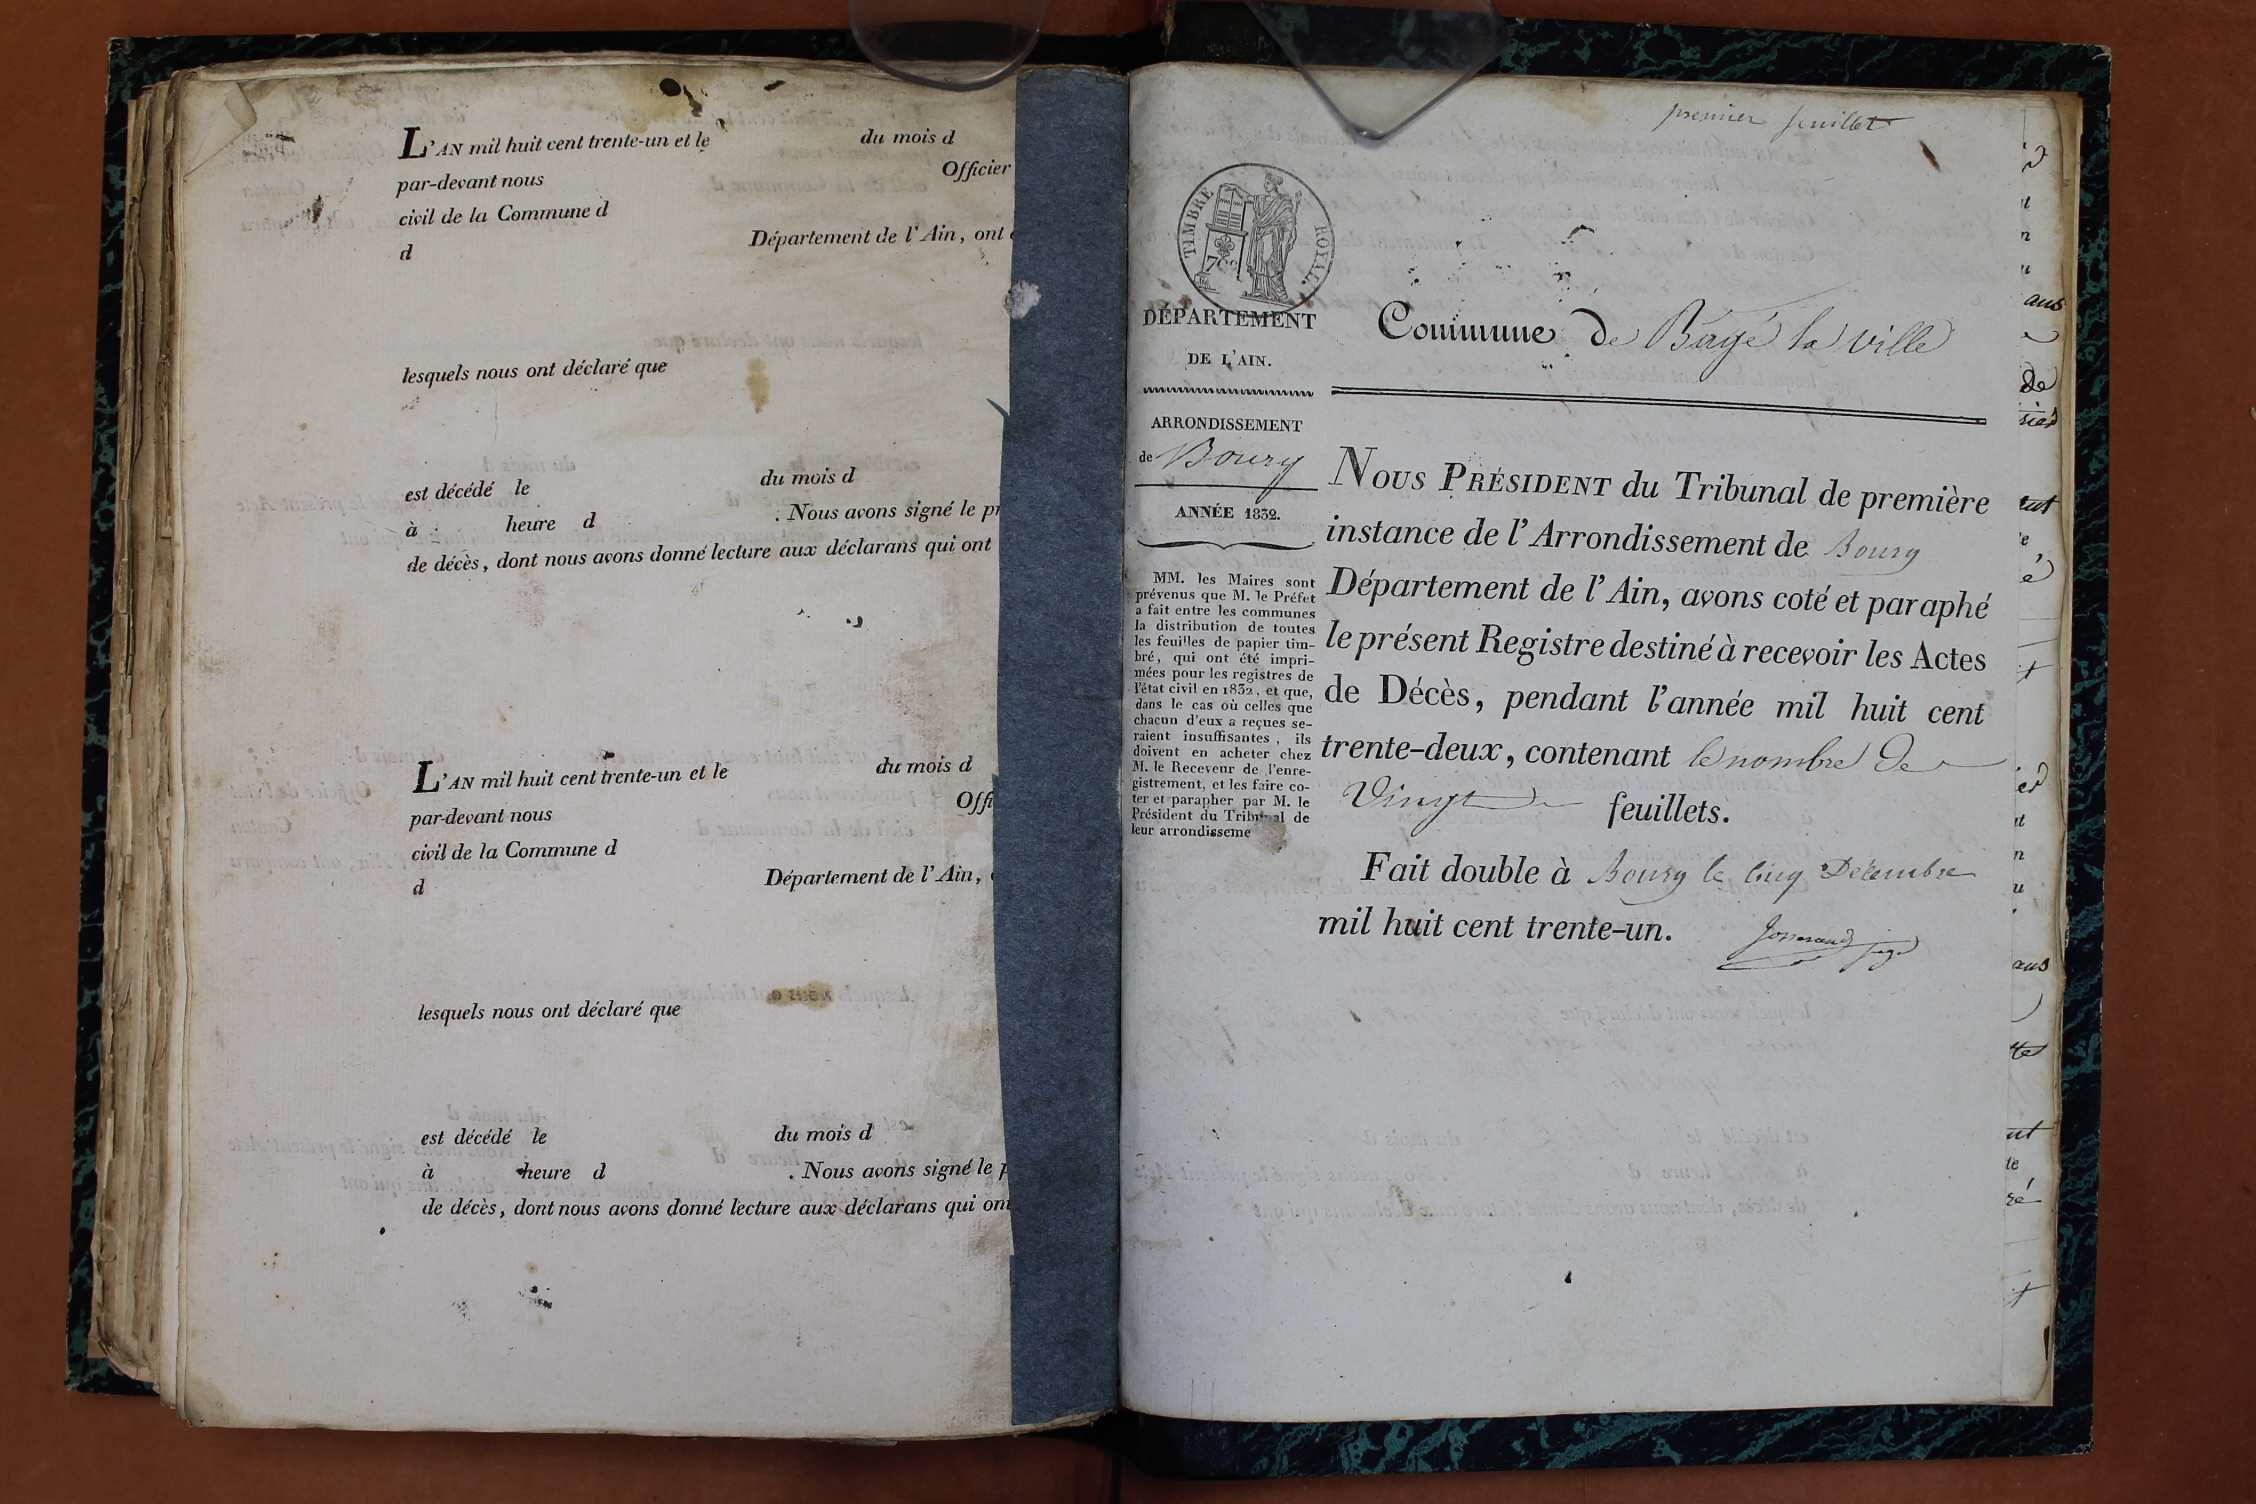 L'AN mil huit cent trente-un et le du mois d
par-devant nous Officier
civil de la Commune d
d Département de l'Ain, ont
lesquels nous ont déclaré que
est décédé le du mois d
à heure d . Nous avons signé le pr
de décès, dont nous avons donné lecture aux déclarans qui ont
L'AN mil huit cent trente-un et le du mois d
par-devant nous Offi
civil de la Commune d
d Département de l'Ain,
lesquels nous ont déclaré que
est décédé le du mois d
à heure d . Nous avons signé le p
de décès, dont nous avons donné lecture aux déclarans qui ont
premier feuillet
TIMBRE ROYAL.
DÉPARTEMENT
DE L'AIN.
ARRONDISSEMENT
de Bourg
ANNÉE 1832.
MM. les Maires sont
prévenus que M. le Préfet
a fait entre les communes
la distribution de toutes
les feuilles de papier tim-
bré, qui ont été impri-
mées pour les registres de
l'état civil en 1832, et que,
dans le cas où celles que
chacun d'eux a reçues se-
raient insuffisantes, ils
doivent en acheter chez
M. le Receveur de l'enre-
gistrement, et les faire co-
ter et parapher par M. le
Président du Tribunal de
leur arrondisseme
Commune de Bagé la ville
NOUS PRÉSIDENT du Tribunal de première
instance de l'Arrondissement de Bourg
Département de l'Ain, avons coté et paraphé
le présent Registre destiné à recevoir les Actes
de Décès, pendant l'année mil huit cent
trente-deux, contenant le nombre de
Vingt feuillets.
Fait double à Bourg le cinq Décembre
mil huit cent trente-un.
juge